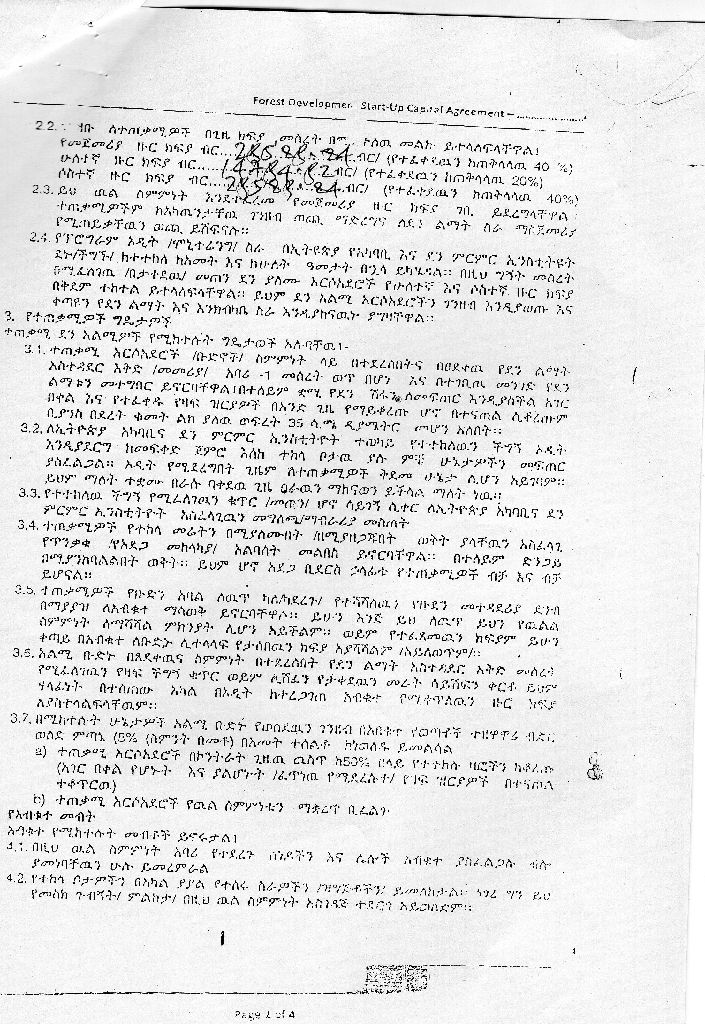 Forest Development Start-Up Capital Agreement –
2.2. ለተጠቃሚዎች በጊዜ ክፍያ መሰረት መልክ ይተላለፍላቸዋል፤
የመጀመሪያ ዙር ክፍያ ብር ብር/ (የተፈቀደዉን ከጠቅላላዉ 40 %)
ሁለተኛ ዙር ክፍያ ብር ብር/ (የተፈቀደዉን ከጠቅላላዉ 20%)
ሶስተኛ ዙር ክፍያ ብር ብር/ (የተፈቀደዉን ከጠቅላላዉ 40%)
2.3. ይህ ዉል ስምምነት እንደተፈረመ የመጀመሪያ ዙር ክፍያ ገቢ ይደረግላቸዋል፡
ተጠቃሚዎችም ከአካዉንታቸዉ ገንዘብ ወጪ ማድረግና ለደን ልማት ስራ ማስጀመሪያ
የሚጠይቃቸዉን ወጪ ይሸፍናሉ።
2.4. የፕሮግራም ኦዲት /ሞኒተሪንግ/ ስራ በኢትዮጵያ የአካባቢ እና ደን ምርምር ኢንስቲትዩት
ደኑ/ችግኙ/ ከተተከለ ከአመት እና ከሁለት ዓመታት በኋላ ይካሄዳል። በዚህ ግኝት መሰረት
በሚፈለገዉ /በታቀደዉ/ መጠን ደን ያለሙ አርሶአደሮች የሁለተኛ እና ሶስተኛ ዙር ክፍያ
በቅደም ተከተል ይተላለፍላቸዋል። ይህም ደን አልሚ አርሶአደሮችን ገንዘብ እንዲያወጡ እና
ቀጣዩን የደን ልማት እና እንክብካቤ ስራ እንዲያከናዉኑ ያግዛቸዋል።
3. የተጠቃሚዎች ግዴታዎች
ተጠቃሚ ደን አልሚዎች የሚከተሉት ግዴታወች አሉባቸዉ፤-
3.1. ተጠቃሚ አርሶአደሮች /ቡድኖች/ ስምምነት ላይ በተደረሰበትና በፀደቀዉ የደን ልማት
አስተዳደር እቅድ /መመሪያ/ አባሪ -1 መሰረት ወጥ በሆነ እና በተገቢዉ መንገድ የደን
ልማቱን መተግበር ይኖርባቸዋል፤በተለይም ቋሚ የደን ሽፋን ለመፍጠር እንዲያስችል አገር
በቀል እና የተፈቀዱ የዛፍ ዝርያዎች በአንድ ጊዜ የማይቆረጡ ሆኖ በተናጠል ሲቆረጡም
ቢያንስ በደረት ቁመት ልክ ያለዉ ወፍረት 35 ሳ.ሜ ዲያሜትር መሆን አለበት።
3.2. ለኢትዮጵያ አካባቢና ደን ምርምር ኢንስቲትዮት ተወካይ የተተከለዉን ችግኝ ኦዲት
እንዲያደርግ ከመፍቀድ ጀምሮ እስከ ተከላ ቦታዉ ያሉ ምቹ ሁኔታዎችን መፍጠር
ያስፈልጋል። ኦዲት የሚደረግበት ጊዜም ለተጠቃሚዎች ቅድመ ሁኔታ ሊሆን አይገባም።
ይህም ማለት ተቋሙ በራሱ ባቀደዉ ጊዜ ስራዉን ማከናወን ይችላል ማለት ነዉ።
3.3. የተተከለዉ ችግኝ የሚፈለገዉን ቁጥር /መጠን/ ሆኖ ሳይገኝ ሲቀር ለኢትዮጵያ አካባቢና ደን
ምርምር ኢንስቲትዮት አስፈላጊዉን መግለጫ/ማብራሪያ መስጠት
3.4. ተጠቃሚዎች የተከላ መሬትን በሚያለሙበት /በሚያዘጋጁበት ወቅት ያላቸዉን አስፈላጊ
የጥንቃቄ /የአደጋ መከላካያ/ አልባሳት መልበስ ይኖርባቸዋል። በተለይም ድንጋይ
በሚያንከባልልበት ወቅት። ይህም ሆኖ አደጋ ቢደርስ ኃላፊቱ የተጠቃሚዎች ብቻ እና ብቻ
ይሆናል።
3.5. ተጠቃሚዎች የቡድን አባል ለዉጥ ካለ/ካደረጉ/ የተሻሻለዉን የቡድን መተዳደሪያ ደንብ
በማያያዝ ለአብቁተ ማሳወቅ ይኖርባቸዋል። ይሁን እንጅ ይህ ለዉጥ ይህን የዉል
ስምምነት ለማሻሻል ምክንያት ሊሆን አይችልም። ወይም የተፈጸመዉን ክፍያም ይሁን
ቀጣይ በአብቁተ ለቡድኑ ሊተላለፍ የታሰበዉን ክፍያ አያሻሽልም /አይለወጥም/።
3.6. አልሚ ቡድኑ በጸደቀዉና ስምምነት በተደረሰበት የደን ልማት አስተዳደር እቅድ መሰረት
የሚፈለገዉን የዛፍ ችግኝ ቁጥር ወይም ሊሸፈን የታቀደዉን መሬት ሳይሸፍን ቀርቶ ይህም
ሃላፊነት በተሰጠው አካል በኦዲት ከተረጋገጠ አብቁተ የሚቀጥለዉን ዙር ክፍያ
ላያስተላልፍላቸዉም።
3.7. በሚከተሉት ሁኔታዎች አልሚ ቡድኑ የወሰደዉን ገንዘብ በአብቁተ የወጣቶች ተዘዋዋሪ ብድር
ወለድ ምጣኔ (8% (ስምንት በመቶ) በአመት ተሰልቶ ከነወለዱ ይመልሳል
a) ተጠቃሚ አርሶአደሮች በኮንትራት ጊዜዉ ዉስጥ ከ50% በላይ የተተከሉ ዛፎችን ከቆረጡ
(አገር በቀል የሆኑት እና ያልሆኑት /ፈጥነዉ የሚደረሱት/ የዛፍ ዝርያዎች በተናጠል
ተቆጥርዉ)
b) ተጠቃሚ አርሶአደሮች የዉል ስምምነቱን ማቋረጥ ቢፈልጉ
የአብቁተ መብት
አብቁተ የሚከተሉት መብቶች ይኖሩታል፤
4.1. በዚህ ዉል ስምምነት አባሪ የተደረጉ ሰነዶችን እና ሌሎች አብቁተ ያስፈልጋሉ ብሎ
ያመነባቸዉን ሁሉ ይመረምራል
4.2. የተከላ ቦታዎችን በአካል ያያል የተሰሩ ስራዎችን ይመለከታል። ነገረ ግን ይህ
የመስክ ጉብኝት/ ምልከታ/ በዚህ ዉል ስምምነት እስገዳጅ ተደርጎ አይወሰድም።
1
Page 2 of 4